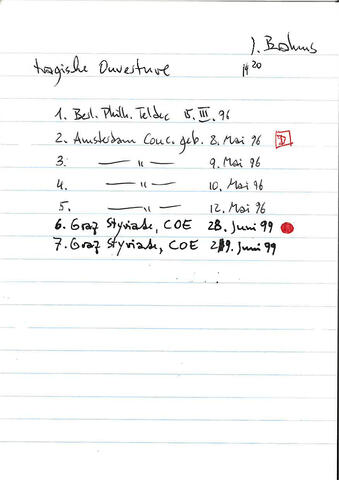 J. Brahms
tragische Ouverture 14'20
1. Berl. Philh. Teldec 15. III. 96
2. Amsterdam Conc. geb. 8. Mai 96 D
3. —— " —— 9. Mai 96
4. —— " —— 10. Mai 96
5. —— " —— 12. Mai 96
6. Graz Styriate, COE 28. Juni 99
7. Graz Styriate, COE 29. Juni 99